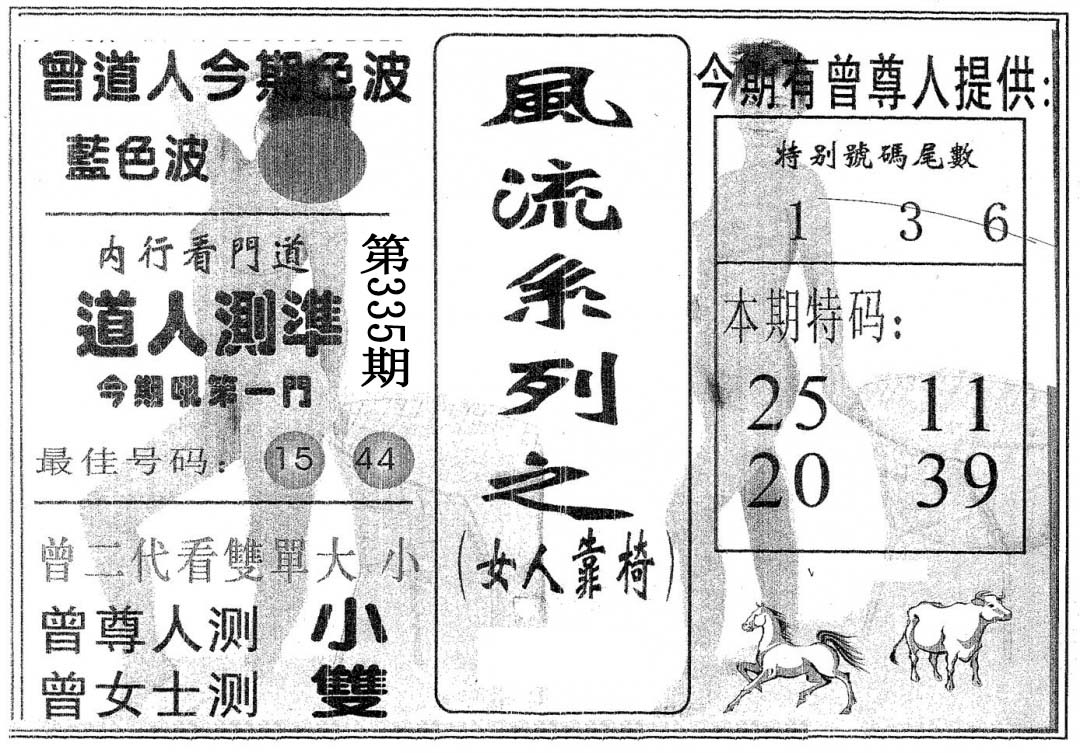 曾道人今期色波
藍色波
内行看門道
道人測準
今期吼第一門
最佳号码：15 44
第335期
曾二代看雙單大小
曾尊人测 小
曾女士测 雙
風流系列之
（女人靠椅）
今期有曾尊人提供：
特别號碼尾數
1 3 6
本期特码：
25 11
20 39